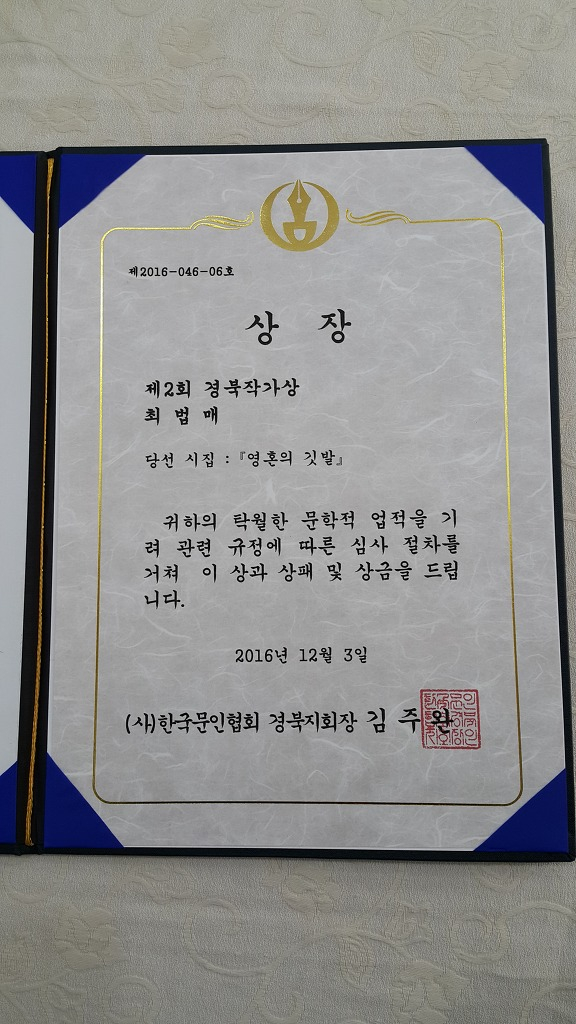 제2016-046-06호
상 장
제2회 경북작가상
최 법 매
당선 시집 : 『영혼의 깃발』
귀하의 탁월한 문학적 업적을 기
려 관련 규정에 따른 심사 절차를
거쳐 이 상과 상패 및 상금을 드립
니다.
2016년 12월 3일
(사)한국문인협회 경북지회장 김 주 완